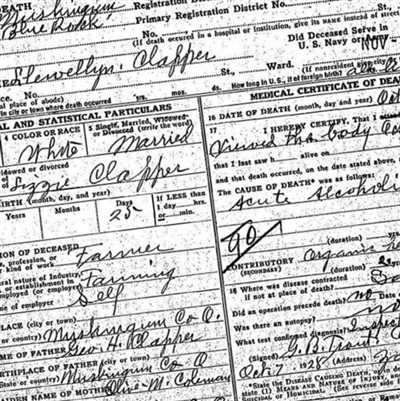 DEATH
Muskingum
Blue Rock
Registration
Primary Registration District No.
(If death occurred in a hospital or institution, give its NAME instead of street
Did Deceased Serve in
U. S. Navy or
NOV
Llewellyn Clapper
No.
St., Ward.
(If nonresident give
place of abode)
in city or town where death occurred yrs. mos.
How long in U. S., if of foreign birth?
AL AND STATISTICAL PARTICULARS
MEDICAL CERTIFICATE OF DEA
4 COLOR OR RACE
5 Single, Married, Widowed,
or Divorced (write the word)
White
Married
16 DATE OF DEATH (month, day and year) Oct
17 I HEREBY CERTIFY, That I
Viewed the body
that I last saw h alive on
and that death occurred, on the date stated above,
The CAUSE OF DEATH* was as follows:
Acute Alcoholi
widowed or
divorced
Lizzie Clapper
BIRTH (month, day, and year)
Years Months Days
25
IF LESS than
1 day hrs.
or min.
90
(duration)
organic he
CONTRIBUTORY
(SECONDARY)
(duration)
TION OF DECEASED
profession, or
kind of work
Farmer
nature of Industry,
or establishment in
employed (or employer)
Farming
e of employer
Self
18 Where was disease contracted
if not at place of death?
Did an operation precede death? no Date
Was there an autopsy? no
What test confirmed diagnosis? Inspect
(Signed) G. B. Trout
Oct. 7, 1928 (Address)
PLACE (city or town)
Muskingum Co O.
NAME OF FATHER Geo H. Clapper
BIRTHPLACE OF FATHER (city or town)
State or country) Muskingum Co O.
MAIDEN NAME OF MOTHER
Olive M. Coleman
*State the DISEASE CAUSING DEATH, or in deaths
state (1) MEANS AND NATURE OF INJURY, and